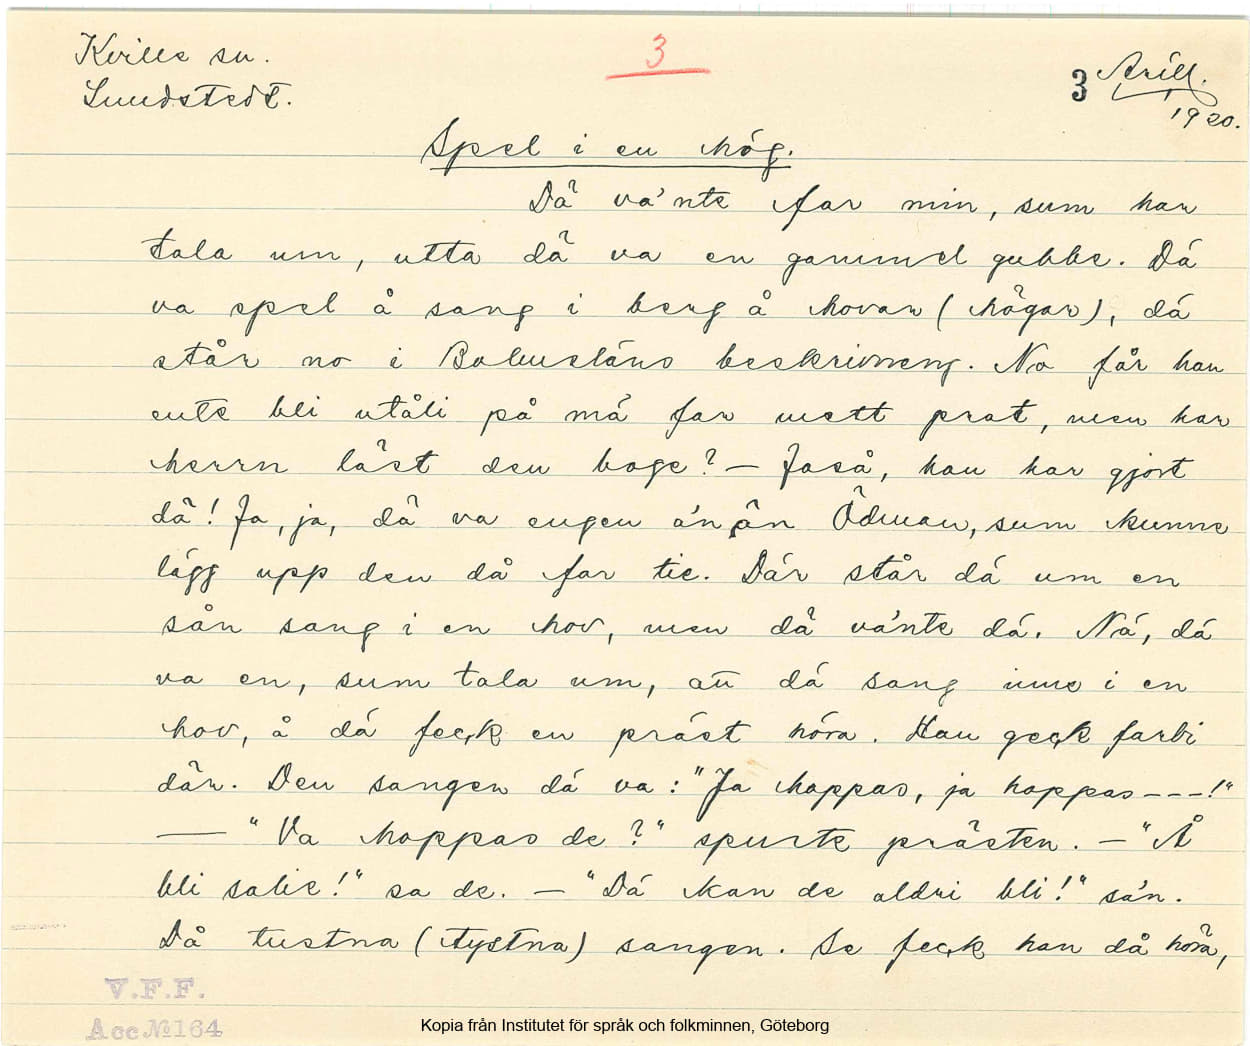 Kville sn.
3
3 April.
Lundstedt.
1920.
Spel i en hög.
Dä va'nte far min, sum har
tala um, utta dä va en gammel gubbe. Dä
va spel å sang i berg å hovar (högar), dä
står no i Bohusläns beskrivneng. No får han
ente bli utåli på mä far mett prat, men har
herrn läst den boge? — Jaså, han har gjort
dä! Ja, ja, dä va engen a'n än Ödman, sum kunne
lägg upp den då far tie. Där står dä um en
sån sang i en hov, men dä va'nte dä. Nä, dä
va en, sum tala um, att dä sang inne i en
hov, å dä feck en präst höra. Han geck farbi
där. Den sangen dä va: "Ja hoppas, ja hoppas---!"
— "Va hoppas de?" spurte prästen. — "Å
bli salie!" sa de. — "Dä kan de aldri bli!" sa'n.
Då tustna (tystna) sangen. Se feck han då höra,
V.F.F.
Acc No 164
Kopia från Institutet för språk och folkminnen, Göteborg